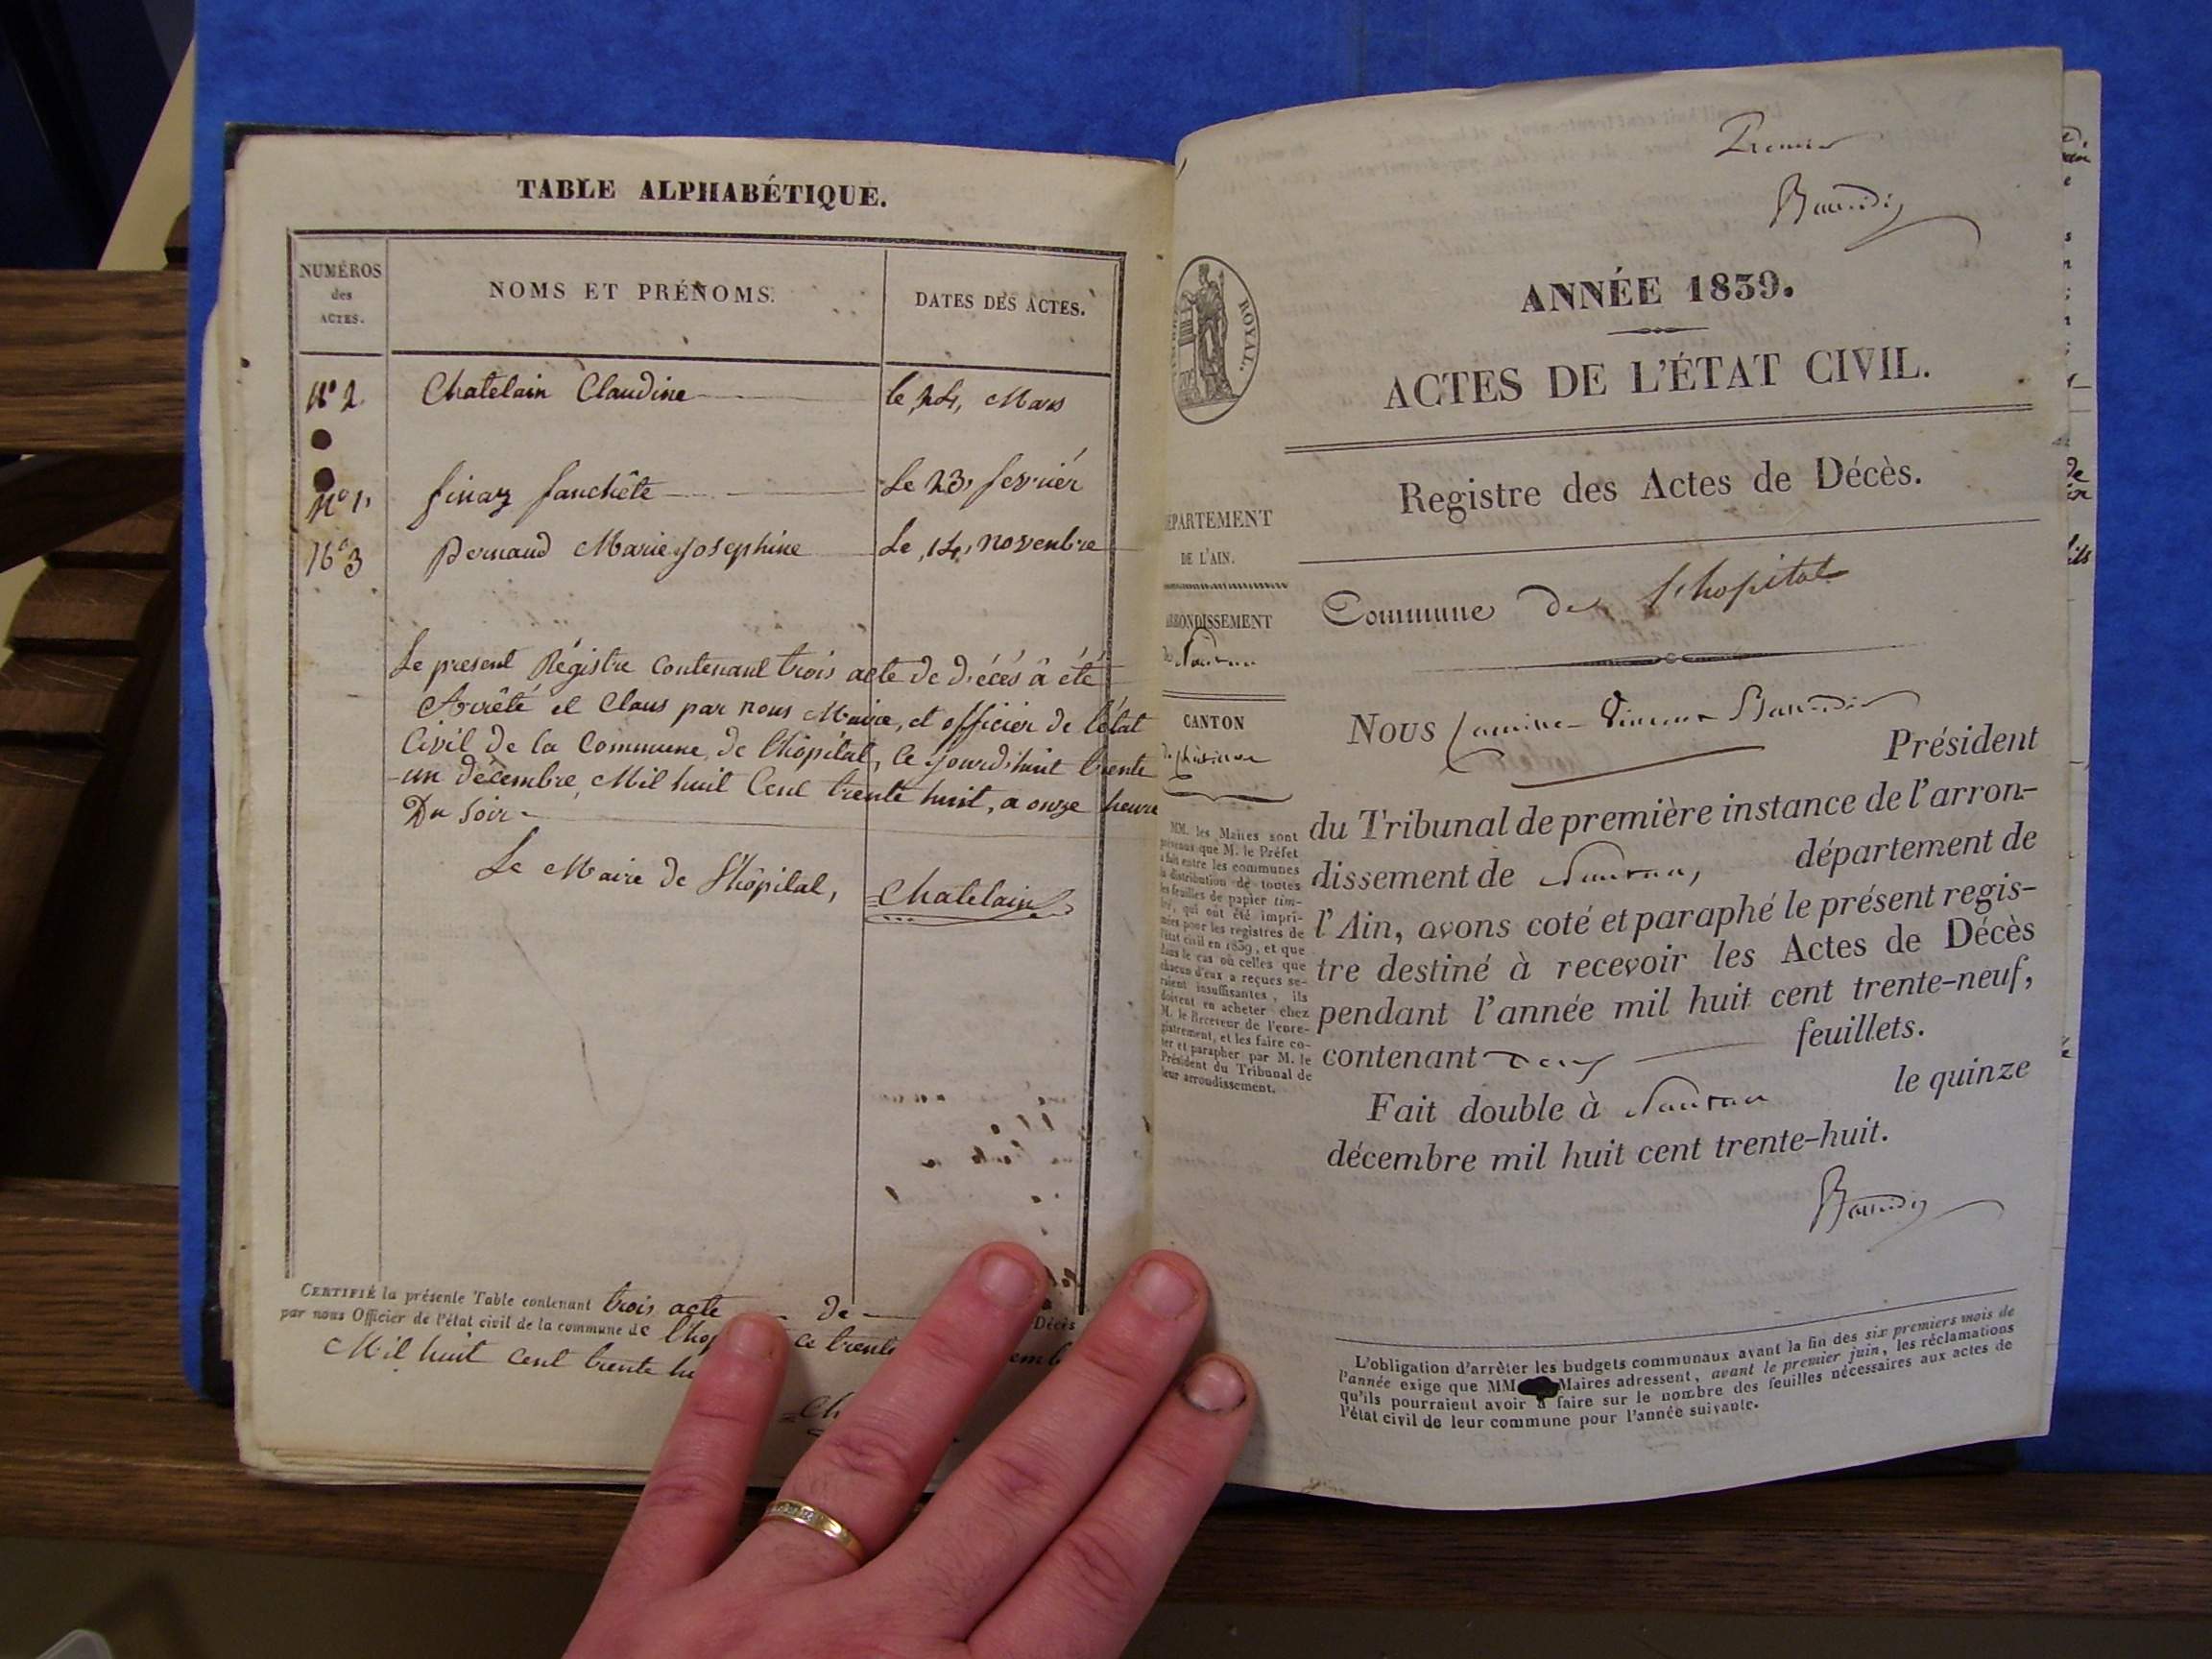 TABLE ALPHABÉTIQUE.
NUMÉROS
des
ACTES.
NOMS ET PRÉNOMS.
DATES DES ACTES.
N° 2 Chatelain Claudine le 24, Mars
N° 1, finaz fanchête Le 23, fesvriér
N° 3 Bernaud Marie Josephine Le, 14, novenbre
Le present Régistre contenant trois acte de décés â été
Arrêté et Claus par nous Maire, et officier de l'état
Civil de la Commune de l'hôpital, Ce jourd'huit trente
-un décembre, Mil huit Cent trente huit, a onze heure
Du Soir
Le Maire de l'hôpital,
Chatelain
CERTIFIÉ la présente Table contenant trois acte de
Décès
par nous Officier de l'état civil de la commune de
Mil huit cent trente
Premier
Baudin
ROYAL.
ANNÉE 1839.
ACTES DE L'ÉTAT CIVIL.
Registre des Actes de Décès.
DÉPARTEMENT
DE L'AIN.
ARRONDISSEMENT
de Nantua
CANTON
Commune de l'hopital
Nous
Président
du Tribunal de première instance de l'arron-
dissement de Nantua, département de
l'Ain, avons coté et paraphé le présent regis-
tre destiné à recevoir les Actes de Décès
pendant l'année mil huit cent trente-neuf,
contenant deux feuillets.
Fait double à Nantua le quinze
décembre mil huit cent trente-huit.
MM. les Maires sont
prévenus que M. le Préfet
a fait entre les communes
la distribution de toutes
les feuilles de papier tim-
bré, qui ont été impri-
mées pour les registres de
l'état civil en 1839, et que
dans le cas où celles que
chacun d'eux a reçues se-
raient insuffisantes, ils
doivent en acheter chez
M. le Receveur de l'enre-
gistrement, et les faire co-
ter et parapher par M. le
Président du Tribunal de
leur arrondissement.
L'obligation d'arrêter les budgets communaux avant la fin des six premiers mois de
l'année exige que MM Maires adressent, avant le premier juin, les réclamations
qu'ils pourraient avoir à faire sur le nombre des feuilles nécessaires aux actes de
l'état civil de leur commune pour l'année suivante.